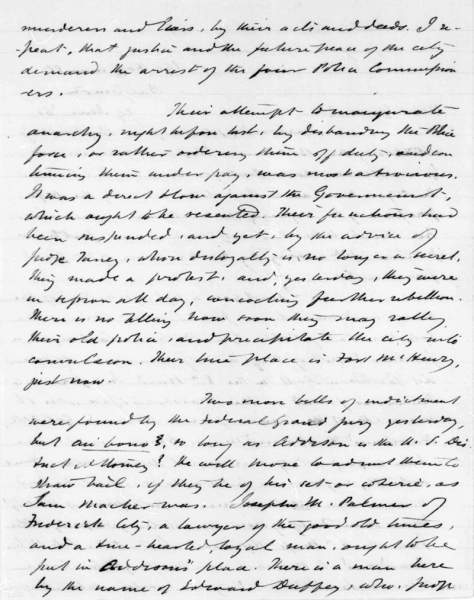 murderers and liars, by their acts and deeds. I re-
-peat, that justice and the future peace of the city
demand the arrest of the four Police Commission
ers.
Their attempt to inaugurate
anarchy, night before last, by disbanding the Police
force, or rather ordering them off duty, and con
tinuing them under pay, was most atrocious.
It was a direct blow against the Government,
which ought to be resented. Their functions had
been suspended, and yet, by the advice of
Judge Taney, whose disloyalty is no longer a secret,
they made a protest, and, yesterday, they were
in session all day, concocting further rebellion.
There is no telling how soon they may rally
their old police, and precipitate the city into
convulsion. Their true place is Fort McHenry,
just now.
Two more bills of indictment
were found by the Federal Grand Jury yesterday,
but cui bono?, so long as Addison is the U. S. Dis
trict Attorney? He will move to admit them to
straw bail, if they be of his set or coterie, as
Sam Mactier was. Joseph M. Palmer of
Frederick City, a lawyer of the good old times,
and a true-hearted loyal man, ought to be
put in Addison's place. There is a man here
by the name of Edward Duffey, who, Judge